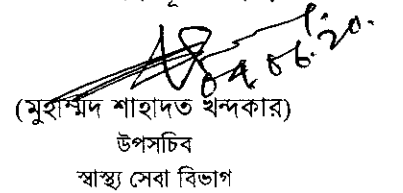 04.06.20.
(মুহাম্মদ শাহাদত খন্দকার)
উপসচিব
স্বাস্থ্য সেবা বিভাগ